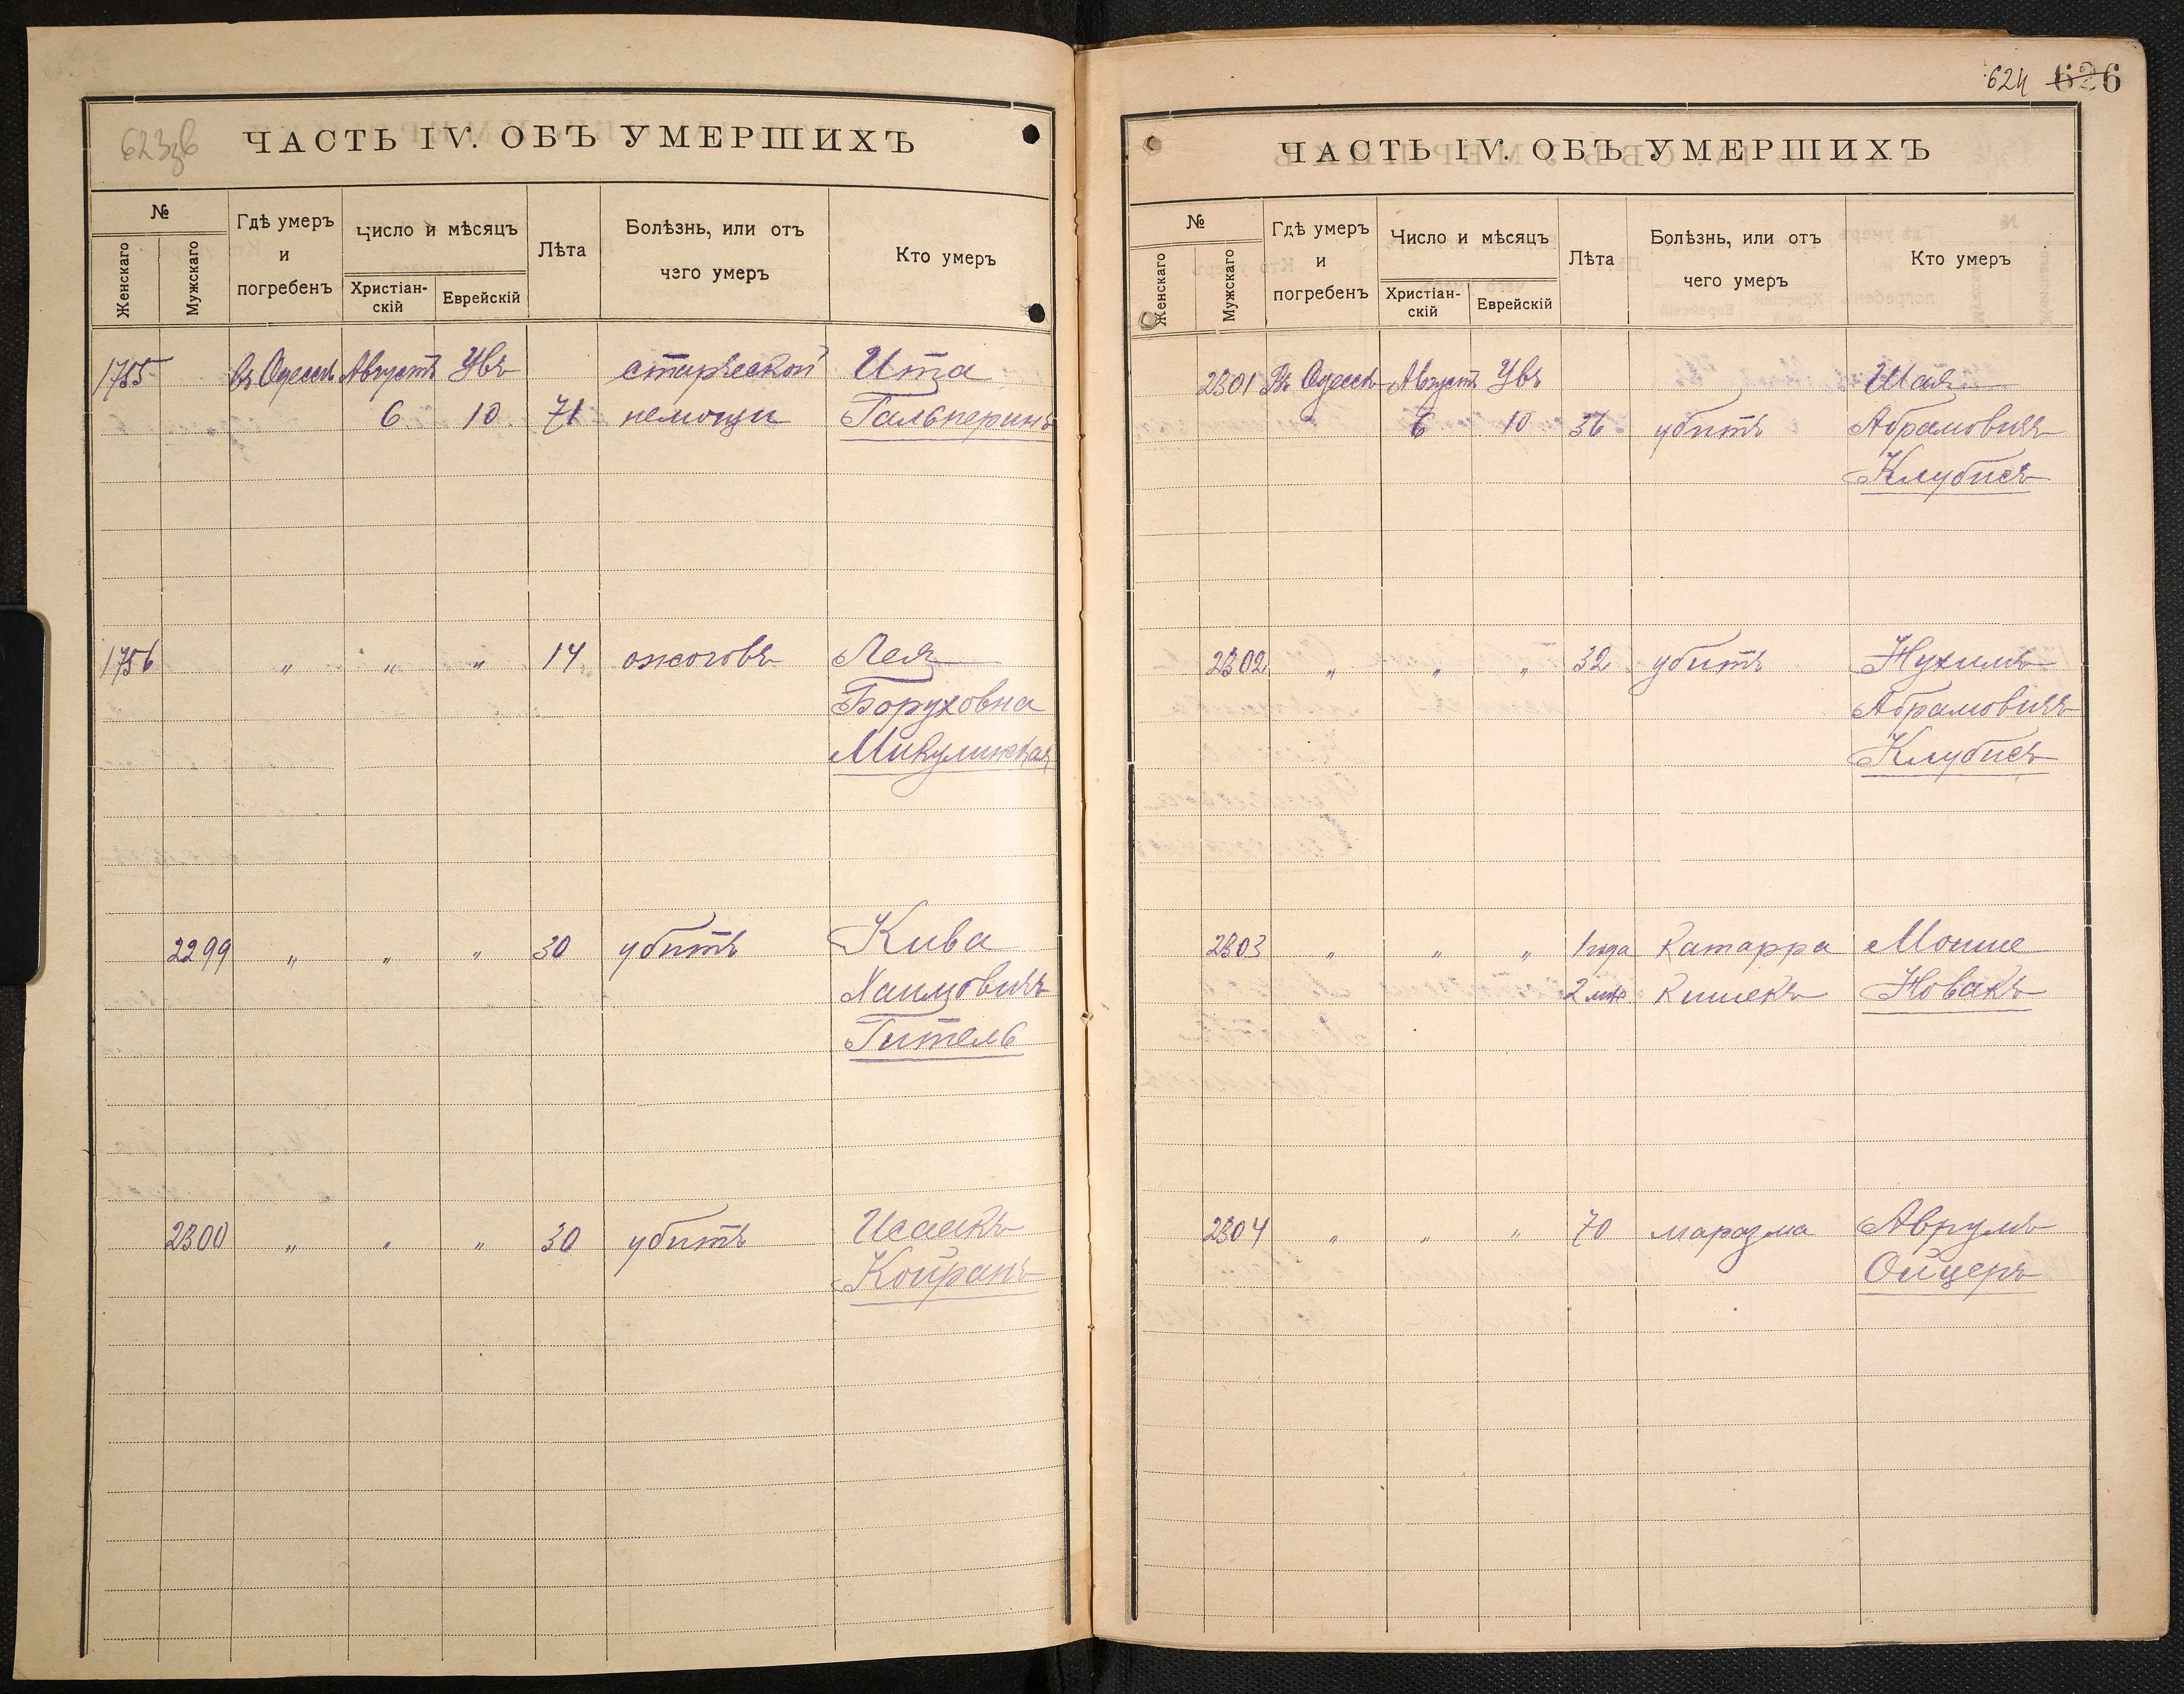 623зв
ЧАСТЬ IV. ОБЪ УМЕРШИХЪ
№
Женскаго
Мужскаго
Гдѣ умеръ
и
погребенъ
Число и мѣсяцъ
Христіан-
скій
Еврейскій
Лѣта
Болѣзнь, или отъ
чего умеръ
Кто умеръ
1755 въ Одессѣ Августъ Увъ старческой Ита
6 10 71 немощи Гальперинъ
1756 " " " 14 ожоговъ Лея
Боруховна
Микулинская
2299 " " " 30 убитъ Кива
Хаимовичъ
Гитель
2300 " " " 30 убитъ Исаакъ
Койранъ
624 626
ЧАСТЬ IV. ОБЪ УМЕРШИХЪ
№
Женскаго
Мужскаго
Гдѣ умеръ
и
погребенъ
Число и мѣсяцъ
Христіан-
скій
Еврейскій
Лѣта
Болѣзнь, или отъ
чего умеръ
Кто умеръ
2301 Въ Одессѣ Августъ Увъ Шая
6 10 36 убитъ Абрамовичъ
Клубисъ
2302 " " " 32 убитъ Нухимъ
Абрамовичъ
Клубисъ
2303 " " " 1 года Катарра Мошше
2 мѣс Кишекъ Новакъ
2304 " " " 70 маразма Аврумъ
Ойцеръ